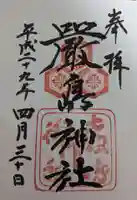 奉拝
嚴島神社
平成二十九年四月三十日